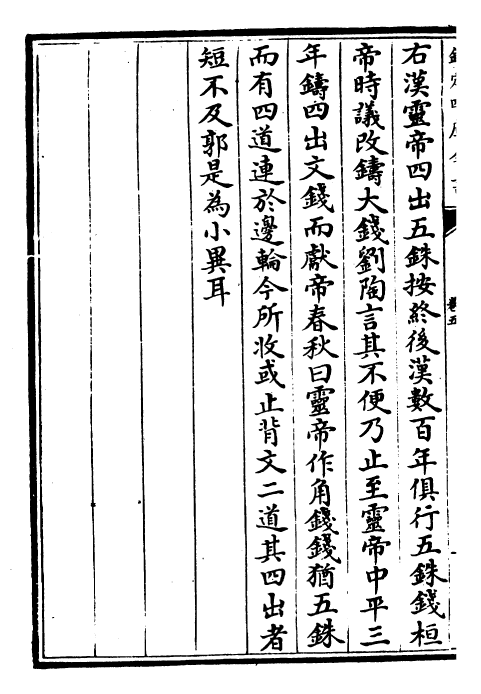 欽定四庫全書
卷五
右漢靈帝四出五銖按終後漢數百年俱行五銖錢桓
帝時議改鑄大錢劉陶言其不便乃止至靈帝中平三
年鑄四出文錢而獻帝春秋曰靈帝作角錢錢猶五銖
而有四道連於邊輪今所收或止背文二道其四出者
短不及郭是為小異耳